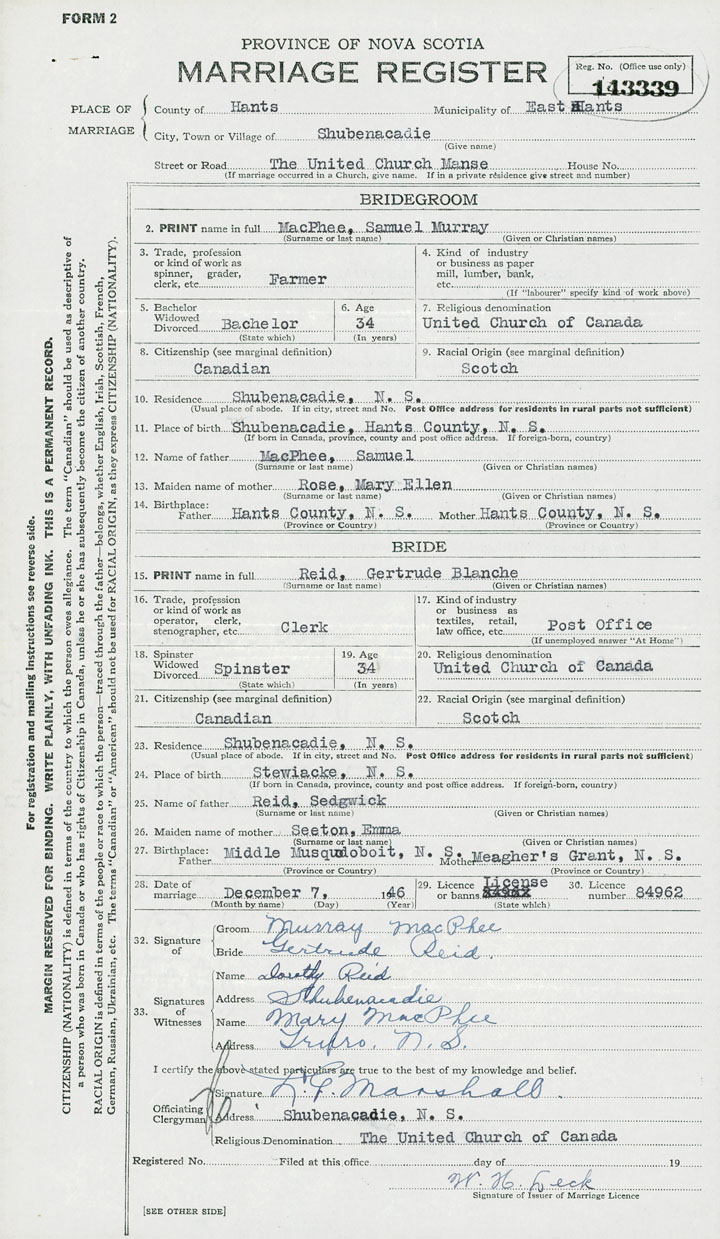 FORM 2
PROVINCE OF NOVA SCOTIA
MARRIAGE REGISTER
Reg. No. (Office use only)
143339
PLACE OF MARRIAGE
County of Hants Municipality of East Hants
City, Town or Village of Shubenacadie
(Give name)
Street or Road The United Church Manse House No.
(If marriage occurred in a Church, give name. If in a private residence give street and number)
BRIDEGROOM
2. PRINT name in full MacPhee, Samuel Murray
(Surname or last name) (Given or Christian names)
3. Trade, profession or kind of work as spinner, grader, clerk, etc. Farmer
4. Kind of industry or business as paper mill, lumber, bank, etc.
(If "labourer" specify kind of work above)
5. Bachelor Widowed Divorced Bachelor
(State which)
6. Age 34
(In years)
7. Religious denomination
United Church of Canada
8. Citizenship (see marginal definition)
Canadian
9. Racial Origin (see marginal definition)
Scotch
10. Residence Shubenacadie, N. S.
(Usual place of abode. If in city, street and No. Post Office address for residents in rural parts not sufficient)
11. Place of birth Shubenacadie, Hants County, N. S.
(If born in Canada, province, county and post office address. If foreign-born, country)
12. Name of father MacPhee, Samuel
(Surname or last name) (Given or Christian names)
13. Maiden name of mother Rose, Mary Ellen
(Surname or last name) (Given or Christian names)
14. Birthplace: Father Hants County, N. S. Mother Hants County, N. S.
(Province or Country) (Province or Country)
BRIDE
15. PRINT name in full Reid, Gertrude Blanche
(Surname or last name) (Given or Christian names)
16. Trade, profession or kind of work as operator, clerk, stenographer, etc. Clerk
17. Kind of industry or business as textiles, retail, law office, etc. Post Office
(If unemployed answer "At Home")
18. Spinster Widowed Divorced Spinster
(State which)
19. Age 34
(In years)
20. Religious denomination
United Church of Canada
21. Citizenship (see marginal definition)
Canadian
22. Racial Origin (see marginal definition)
Scotch
23. Residence Shubenacadie, N. S.
(Usual place of abode. If in city, street and No. Post Office address for residents in rural parts not sufficient)
24. Place of birth Stewiacke, N. S.
(If born in Canada, province, county and post office address. If foreign-born, country)
25. Name of father Reid, Sedgwick
(Surname or last name) (Given or Christian names)
26. Maiden name of mother Seeton, Emma
(Surname or last name) (Given or Christian names)
27. Birthplace: Father Middle Musquodoboit, N. S. Mother Meagher's Grant, N. S.
(Province or Country) (Province or Country)
28. Date of marriage December 7, 1946
(Month by name) (Day) (Year)
29. Licence or banns License
(State which)
30. Licence number 84962
32. Signature of
Groom Murray MacPhee
Bride Gertrude Reid.
33. Signatures of Witnesses
Name Dorothy Reid
Address Shubenacadie
Name Mary MacPhee
Address Truro. N. S.
I certify the above stated particulars are true to the best of my knowledge and belief.
Officiating Clergyman
Signature Marshall.
Address Shubenacadie, N. S.
Religious Denomination The United Church of Canada
Registered No. Filed at this office day of 19
W. H. Deck
Signature of Issuer of Marriage Licence
[SEE OTHER SIDE]
For registration and mailing instructions see reverse side.
MARGIN RESERVED FOR BINDING. WRITE PLAINLY, WITH UNFADING INK. THIS IS A PERMANENT RECORD.
CITIZENSHIP (NATIONALITY) is defined in terms of the country to which the person owes allegiance. The term "Canadian" should be used as descriptive of
a person who was born in Canada or who has rights of Citizenship in Canada, unless he or she has subsequently become the citizen of another country.
RACIAL ORIGIN is defined in terms of the people or race to which the person—traced through the father—belongs, whether English, Irish, Scottish, French,
German, Russian, Ukrainian, etc. The terms "Canadian" or "American" should not be used for RACIAL ORIGIN, as they express CITIZENSHIP (NATIONALITY).